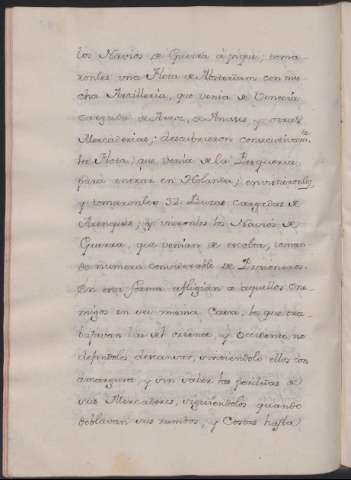 los Navios de Guerra á pique; toma-
ronles una Flota de Amsterdam con mu-
cha Artilleria, que venia de
cargada de Arroz, de Anises, y otras
Mercaderias; descubrieron consecutivam.te
otra Flota, que venia de la Pesqueria
para entrar en Holanda; envistieronles,
y tomaronles 32 Buzas cargadas de
Arenques; y rindieron los Navios de
Guerra, que venian de escolta, toman-
do numero considerable de Prisioneros.
En esta forma afligian a aquellos Ene-
migos en su misma Casa, los que tra-
bajavan en el oriente, y Occidente, no
dejandolos descansar, sintiendolo ellos con
amargura y sin saber las perdidas de
sus Mercaderes, siguiendolos quando
doblavan sus rumbos, y Costas hasta